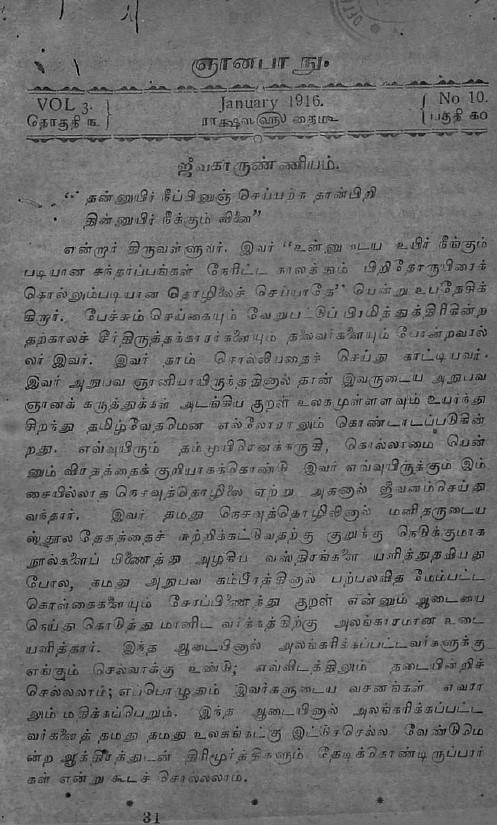 ஞானபாநு.
VOL 3.
தொகுதி ௩
January 1916.
ராக்ஷஸ௵ தைமீ
No 10.
பகுதி ௧௦
ஜீவகாருண்ணியம்.
“தன்னுயிர் நீப்பினுஞ் செய்யற்க தான்பிறி
தின்னுயிர் நீக்கும் வினை”
என்றார் திருவள்ளுவர். இவர் “உன்னுடைய உயிர் நீங்கும்
படியான சந்தர்ப்பங்கள் நேரிட்ட காலத்தும் பிறிதோருயிரைக்
கொல்லும்படியான தொழிலைச் செய்யாதே” யென்று உபதேசிக்
கிறார். பேச்சும் செய்கையும் வேறுபட்டுப் பிரமித்துத்திரிகின்ற
தற்காலச் சீர்திருத்தக்காரர்களையும் தலைவர்களையும் போன்றவால்
லர் இவர். இவர் தாம் சொல்லியதைச் செய்து காட்டியவர்.
இவர் அநுபவ ஞானியாயிருந்ததினால் தான் இவருடைய அநுபவ
ஞானக் கருத்துக்கள் அடங்கிய குறள் உலகமுள்ளளவும் உயர்ந்து
சிறந்து தமிழ்வேதமென எல்லோராலும் கொண்டாடப்படுகின்
றது. எவ்வுயிரும் தம்முயிரெனக்கருதி, கொல்லாமை யென்
னும் விரதத்தைக் குறியாகக்கொண்டு இவர் எவ்வுயிருக்கும் இம்
சையில்லாத நெசவுத்தொழிலை ஏற்று அதனால் ஜீவனம்செய்து
வந்தார். இவர் தமது நெசவுத்தொழிலினால் மனிதருடைய
ஸ்தூல தேகத்தைச் சுற்றிக்கட்டுவதற்கு குறுக்கு நெடுக்குமாக
நூல்களைப் பிணைத்து அழகிய வஸ்திரங்களை யளித்துதவியது
போல, தமது அநுபவ கம்பீரத்தினால் பற்பலவித மேம்பட்ட
கொள்கைகளையும் சேரப்பிணைத்து குறள் என்னும் ஆடையை
நெய்து கொடுத்து மானிட வர்க்கத்திற்கு அலங்காரமான உடை
யளித்தார். இந்த ஆடையினால் அலங்கரிக்கப்பட்டவர்களுக்கு
எங்கும் செலவாக்கு உண்டு; எவ்விடத்திலும் தடையின்றிச்
செல்லலாம்; எப்பொழுதும் இவர்களுடைய வசனங்கள் எவரா
லும் மதிக்கப்பெறும். இந்த ஆடையினால் அலங்கரிக்கப்பட்ட
வர்களைத் தமது தமது உலகங்கட்கு இட்டுச்செல்ல வேண்டுமெ
ன்ற ஆத்திரத்துடன் திரிமூர்த்திகளும் தேடிக்கொண்டிருப்பார்
கள் என்று கூடச் சொல்லலாம்.
* * * *
31